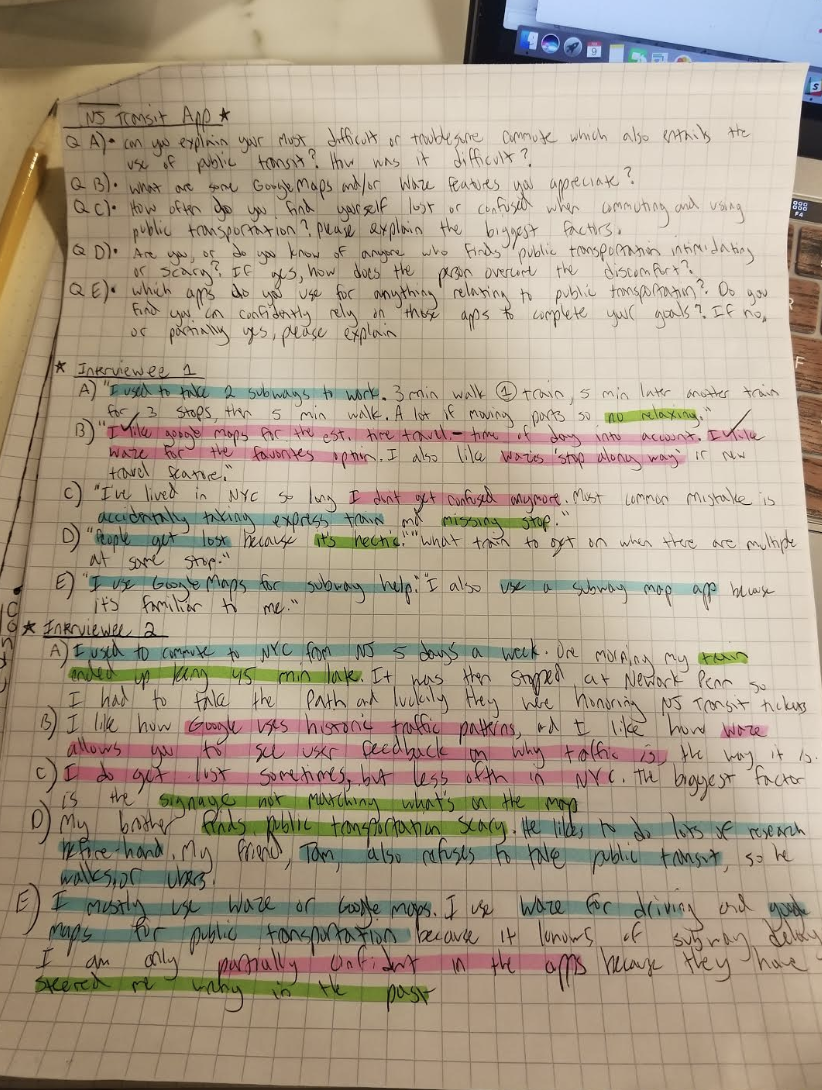 NJ Transit App ★
Q A)• can you explain your most difficult or troublesome commute which also entails the
use of public transit? How was it difficult?
Q B)• What are some Google Maps and/or Waze features you appreciate?
Q C)• How often do you find yourself lost or confused when commuting and using
public transportation? please explain the biggest factors.
Q D)• Are you, or do you know of anyone who finds public transportation intimidating
or scary? If yes, how does the person overcome the discomfort?
Q E)• which apps do you use for anything relating to public transportation? Do you
find you can confidently rely on those apps to complete your goals? If no,
or partially yes, please explain
★ Interviewee 1
A) "I used to take 2 subways to work. 3 min walk ① train, 5 min later another train
for 3 stops, then 5 min walk. A lot of moving parts so no relaxing."
B) "I like google maps for the est. time travel - time of day into account. I like
waze for the favorites option. I also like wazes 'stop along way' or new
travel feature."
C) "I've lived in NYC so long I dont get confused anymore. Most common mistake is
accidentally taking express train and missing stop."
D) "People get lost because it's hectic." "what train to get on when there are multiple
at same stop."
E) "I use Google Maps for subway help." "I also use a subway map app because
it's familiar to me."
★ Interviewee 2
A) I used to commute to NYC from NJ 5 days a week. One morning my train
ended up being 45 min late. It was then stopped at Newark Penn so
I had to take the Path and luckily they were honoring NJ Transit tickets
B) I like how Google uses historic traffic patterns, and I like how waze
allows you to see user feedback on why traffic is, the way it is.
C) I do get lost sometimes, but less often in NYC. The biggest factor
is the signage not matching what's on the map
D) My brother finds public transportation scary. He likes to do lots of research
before-hand. My friend, Tom, also refuses to take public transit, so he
walks, or ubers.
E) I mostly use Waze or Google maps. I use waze for driving and google
maps for public transportation because it knows of subway delay
I am only partially confident in the apps because they have
steered me wrong in the past
F4
F